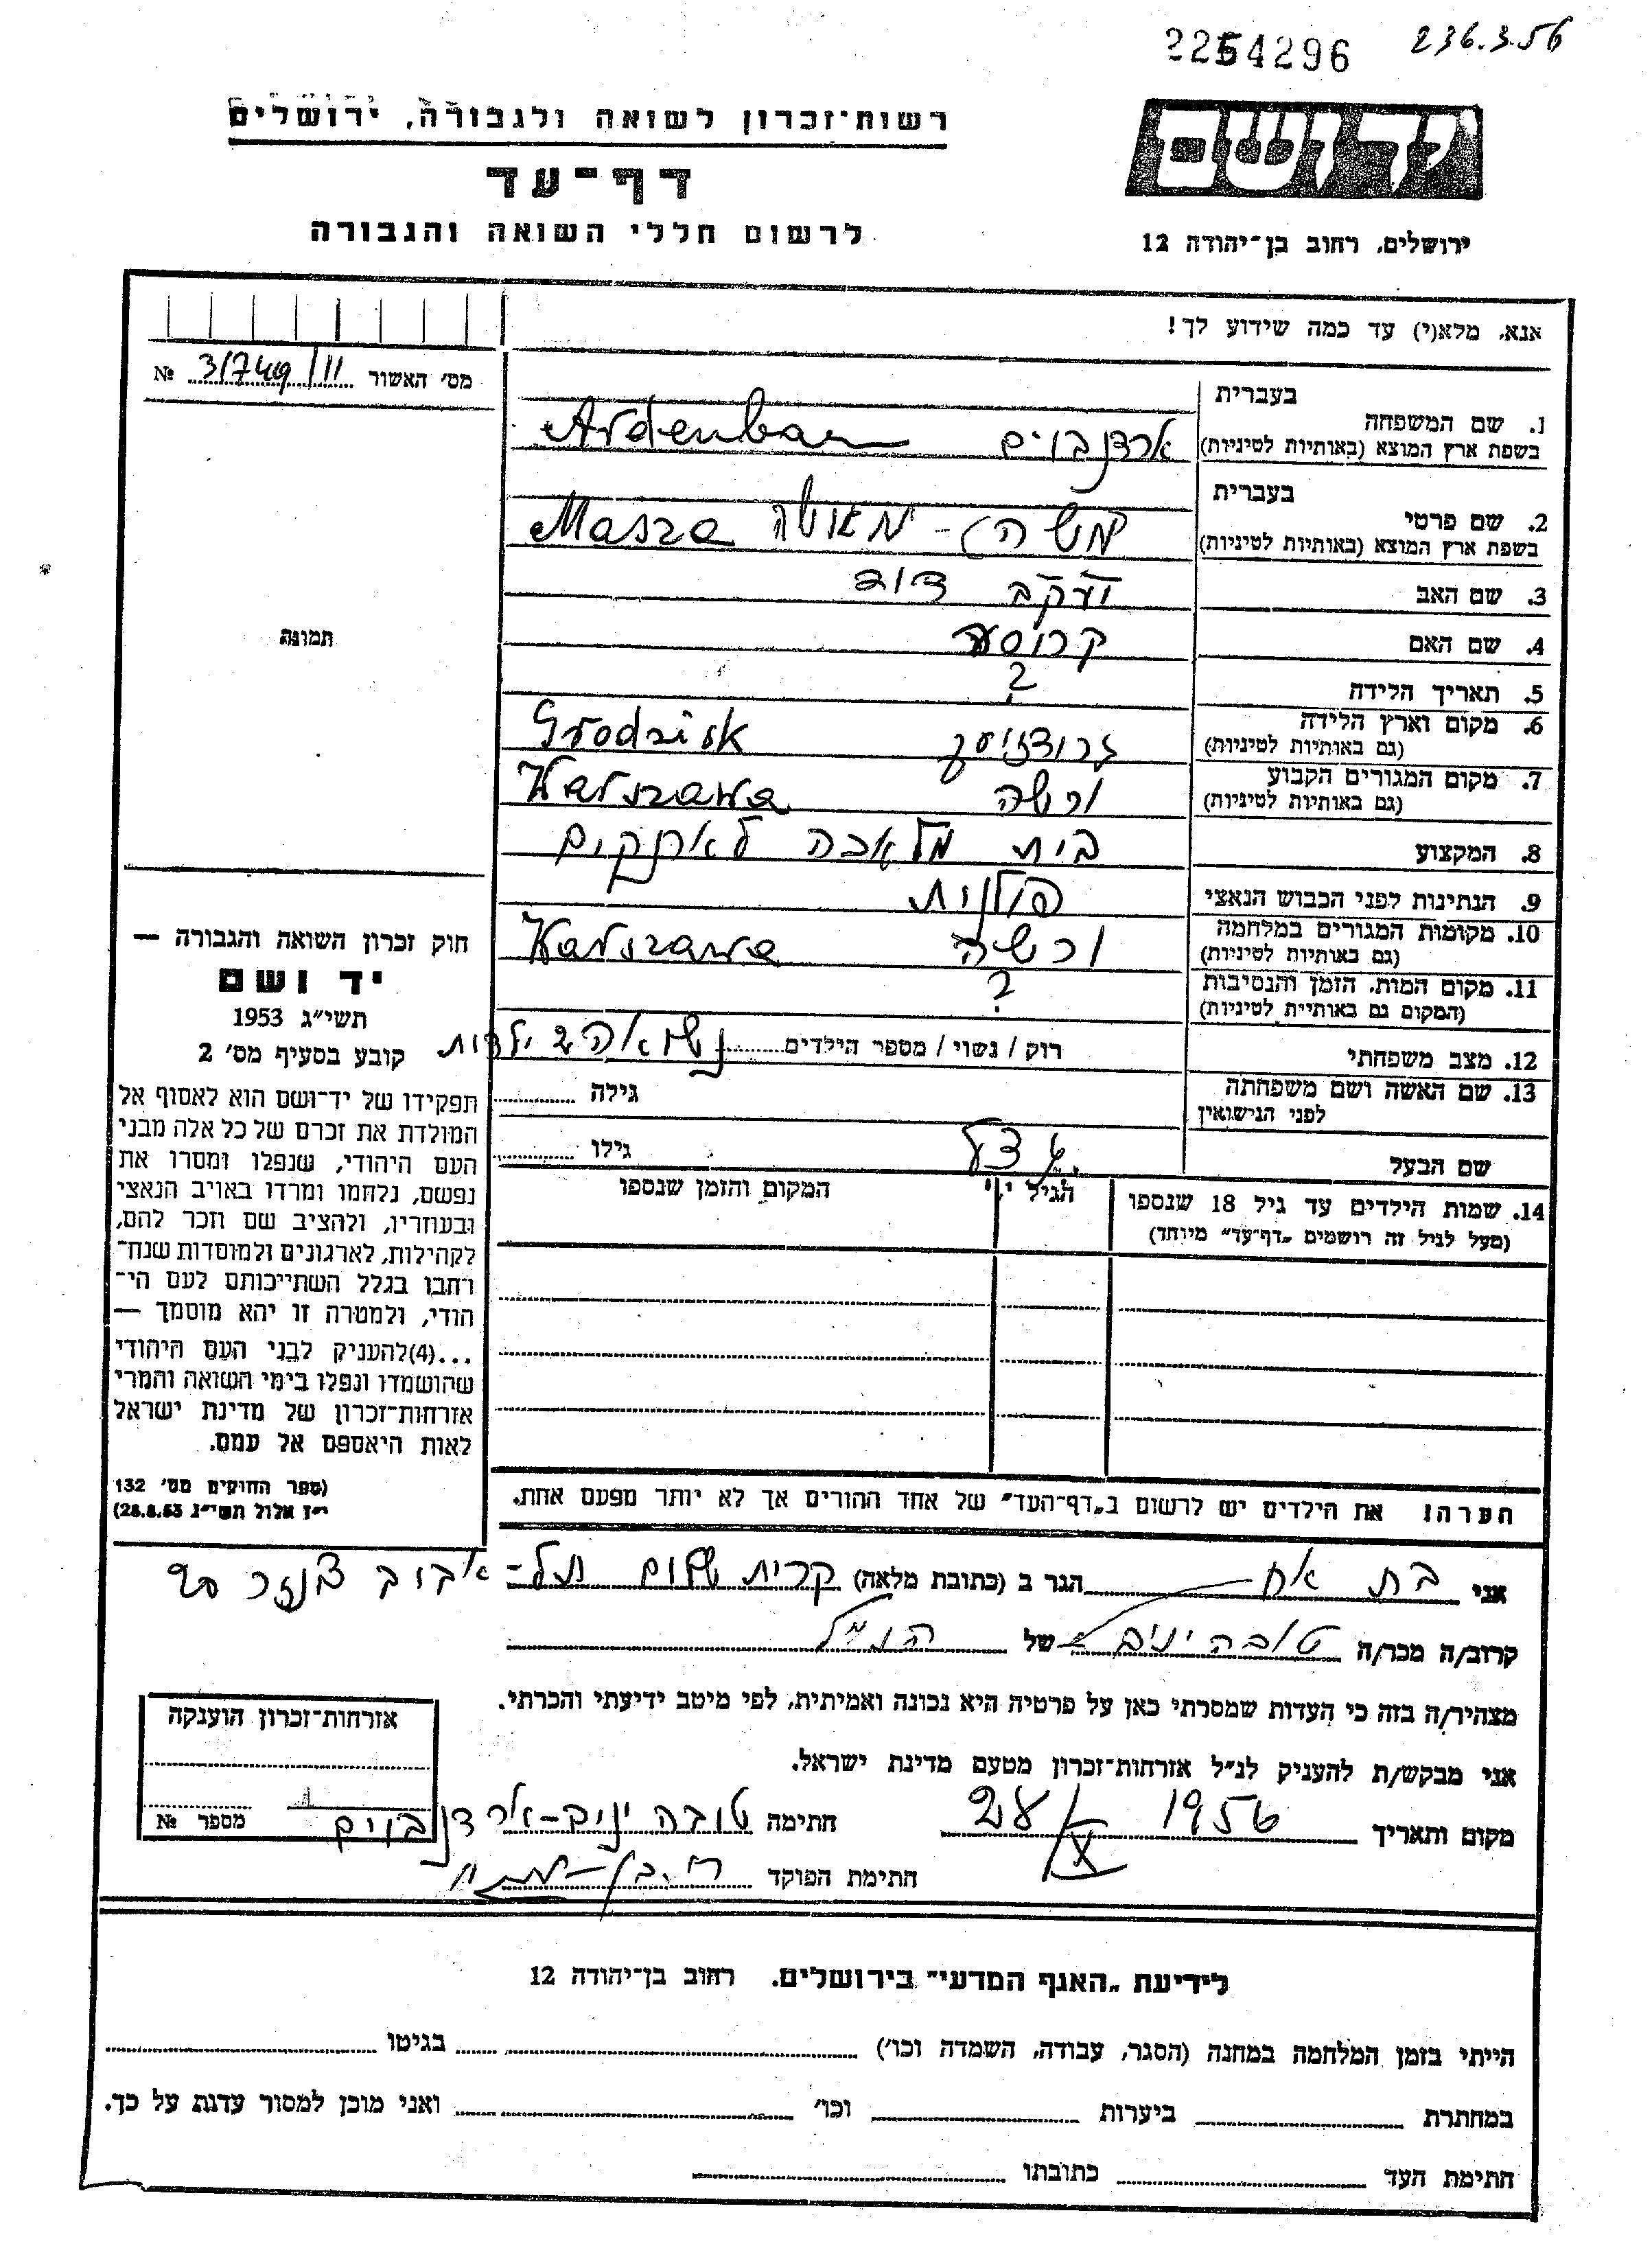 2254296
236.3.56
רשות־זכרון לשואה ולגבורה, ירושלים
דף־עד
לרשום חללי השואה והגבורה
יד ושם
ירושלים, רחוב בן־יהודה 12
אנא, מלא(י) עד כמה שידוע לך!
מס׳ האשור 31749/11 №
תמונה
בעברית
1. שם המשפחה
בשפת ארץ המוצא (באותיות לטיניות)
ארדנבוים Ardenbaum
בעברית
2. שם פרטי
בשפת ארץ המוצא (באותיות לטיניות)
משה - מאשה Masza
3. שם האב יעקב דוד
4. שם האם
5. תאריך הלידה ?
6. מקום וארץ הלידה
(גם באותיות לטיניות)
גרודזיסק Grodzisk
7. מקום המגורים הקבוע
(גם באותיות לטיניות)
ורשה Warszawa
8. המקצוע בית מלאכה
9. הנתינות לפני הכבוש הנאצי פולנית
10. מקומות המגורים במלחמה
(גם באותיות לטיניות)
ורשה Warszawa
11. מקום המות, הזמן והנסיבות
(המקום גם באותיות לטיניות)
?
12. מצב משפחתי רוק / נשוי / מספר הילדים נשואה 2 ילדות
13. שם האשה ושם משפחתה
לפני הנישואין
גילה
שם הבעל
גילו
14. שמות הילדים עד גיל 18 שנספו
(מעל לגיל זה רושמים „דף־עד״ מיוחד)
הגיל
המקום והזמן שנספו
חוק זכרון השואה והגבורה —
יד ושם
תשי״ג 1953
קובע בסעיף מס׳ 2
תפקידו של יד־ושם הוא לאסוף אל
המולדת את זכרם של כל אלה מבני
העם היהודי, שנפלו ומסרו את
נפשם, נלחמו ומרדו באויב הנאצי
ובעוזריו, ולהציב שם וזכר להם,
לקהילות, לארגונים ולמוסדות שנח־
רבו בגלל השתייכותם לעם הי־
הודי, ולמטרה זו יהא מוסמך —
...(4)להעניק לבני העם היהודי
שהושמדו ונפלו בימי השואה והמרי
אזרחות־זכרון של מדינת ישראל
לאות היאספם אל עמם.
(ספר החוקים מס׳ 132
י״ז אלול תשי״ג 28.8.53)
הערה! את הילדים יש לרשום ב„דף־העד״ של אחד ההורים אך לא יותר מפעם אחת.
אני בת אח הגר ב (כתובת מלאה) קרית שלום תל-אביב
קרוב/ה מכר/ה טובה יניב של הנ״ל
מצהיר/ה בזה כי העדות שמסרתי כאן על פרטיה היא נכונה ואמיתית, לפי מיטב ידיעתי והכרתי.
אני מבקש/ת להעניק לנ״ל אזרחות־זכרון מטעם מדינת ישראל.
מקום ותאריך 1956 X חתימה טובה יניב-ארדנבוים
חתימת הפוקד
אזרחות־זכרון הוענקה
מספר №
לידיעת „האגף המדעי״ בירושלים, רחוב בן־יהודה 12
הייתי בזמן המלחמה במחנה (הסגר, עבודה, השמדה וכו׳) בגיטו
במחתרת ביערות וכו׳ ואני מוכן למסור עדות על כך.
חתימת העד כתובתו